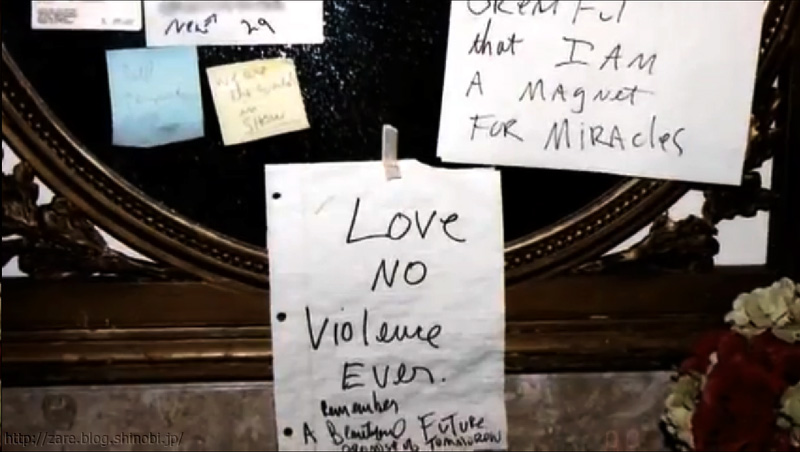 New 29
We are
the world
on
SHOW
that I AM
A MAgnet
FOR MiRAcles
Love
NO
Violence
Ever.
Remember
A Beautiful Future
TOMMOROW
http://zare.blog.shinobi.jp/